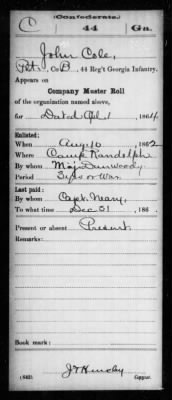 (Confederate.)
C 44 Ga.
John Cole,
Pvt, Co. B, 44 Reg't Georgia Infantry.
Appears on
Company Muster Roll
of the organization named above,
for Dated Apl. 1, 1864.
Enlisted:
When Aug. 10, 1862
Where Camp Randolph
By whom Maj. Dunwoody
Period 3 yrs or War.
Last paid:
By whom Capt. Mary,
To what time Dec 31, 186 .
Present or absent Present
Remarks:
Book mark:
(642)
Copyist.